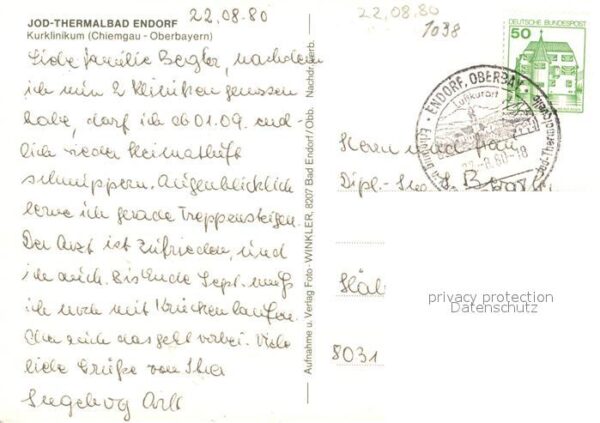 22.08.80
JOD-THERMALBAD ENDORF
Kurklinikum (Chiemgau - Oberbayern)
Liebe Familie Begler, nachdem
ich nun 2 Kliniken genossen
habe, darf ich ab 01.09. end-
lich wieder Heimatluft
schnuppern. Augenblicklich
lerne ich gerade Treppensteigen.
Der Arzt ist zufrieden, und
ich auch. Bis Ende Sept. muß
ich noch mit Krücken laufen.
Aber auch das geht vorbei. Viele
liebe Grüße von Ihrer
Ingeborg
Aufnahme u. Verlag Foto-WINKLER, 8207 Bad Endorf/Obb. Nachdr. verb.
22.08.80
1038
DEUTSCHE BUNDESPOST
50
ENDORF, OBERBAY.
Luftkurort
-8.80-18
Herrn und Frau
Dipl.-
8031
privacy protection
Datenschutz